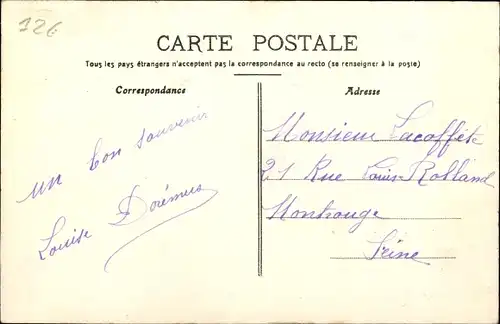 32€
CARTE POSTALE
Tous les pays étrangers n'acceptent pas la correspondance au recto (se renseigner à la poste)
Correspondance
un bon souvenir
Louise Dorémus
Adresse
Monsieur Lacoffête
21 Rue Louis Rolland
Montrouge
Seine